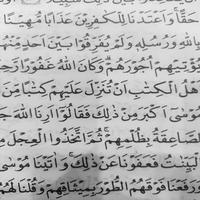 حَقًّا وَاَعْتَدْنَا لِلْكٰفِرِيْنَ عَذَابًا مُّهِيْنًا
بِاللّٰهِ وَرُسُلِهٖ وَلَمْ يُفَرِّقُوْا بَيْنَ اَحَدٍ مِّنْهُمْ
يُؤْتِيْهِمْ اُجُوْرَهُمْ وَكَانَ اللّٰهُ غَفُوْرًا رَّحِ
هْلُ الْكِتٰبِ اَنْ تُنَزِّلَ عَلَيْهِمْ كِتٰبًا مِّنَ
مُوْسٰٓى اَكْبَرَ مِنْ ذٰلِكَ فَقَالُوْٓا اَرِنَا اللّٰهَ جَ
الصّٰعِقَةُ بِظُلْمِهِمْ ثُمَّ اتَّخَذُوا الْعِجْلَ مِ
الْبَيِّنٰتُ فَعَفَوْنَا عَنْ ذٰلِكَ وَاٰتَيْنَا مُوْسٰى
وَرَفَعْنَا فَوْقَهُمُ الطُّوْرَ بِمِيْثَاقِهِمْ وَقُلْنَا لَهُمُ